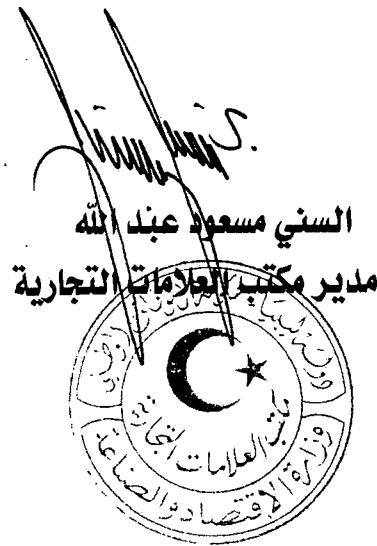 السني مسعود عبد الله
مدير مكتب العلامات التجارية
دولة ليبيا
مكتب العلامات التجارية
وزارة الاقتصاد والصناعة